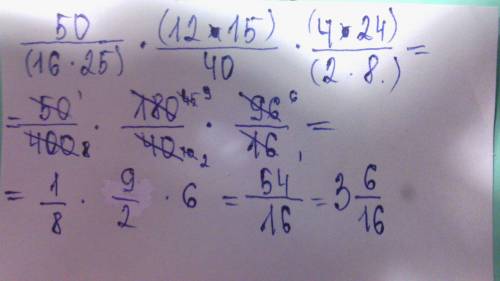 50/(16·25) · (12·15)/40 · (4·24)/(2·8.) =
= 50 1/400 8 · 180 45 9/40 10 2 · 96 6/16 1 =
= 1/8 · 9/2 · 6 = 54/16 = 3 6/16